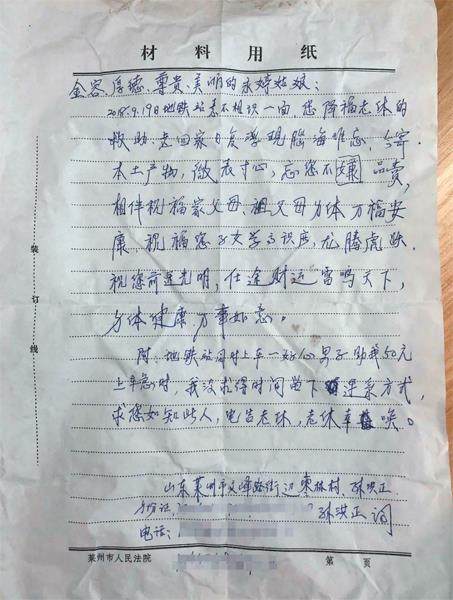 材料用纸
金容、厚德、尊贵、美丽的永婷姑娘:
2018.9.19日地铁站素不相识一面,您降福老休的
救助,老回家日夜浮现脑海难忘,今寄
本土产物,微表寸心,忘您不嫌品卖,
相伴祝福家父母、祖父母身体万福安
康,祝福您子女学高识广,龙腾虎跃.
祝您前途光明,仕途财运富鸣天下,
身体健康,万事如意。
附:地铁站同时上车一好心男子助我50元
上车急时,我没来得时间留下联系方式,
求您如知此人,电告老休,老休
山东莱州市文峰路街边東林村、孙洪正
身份证 孙洪正
电话:
莱州市人民法院 第 页
装订线